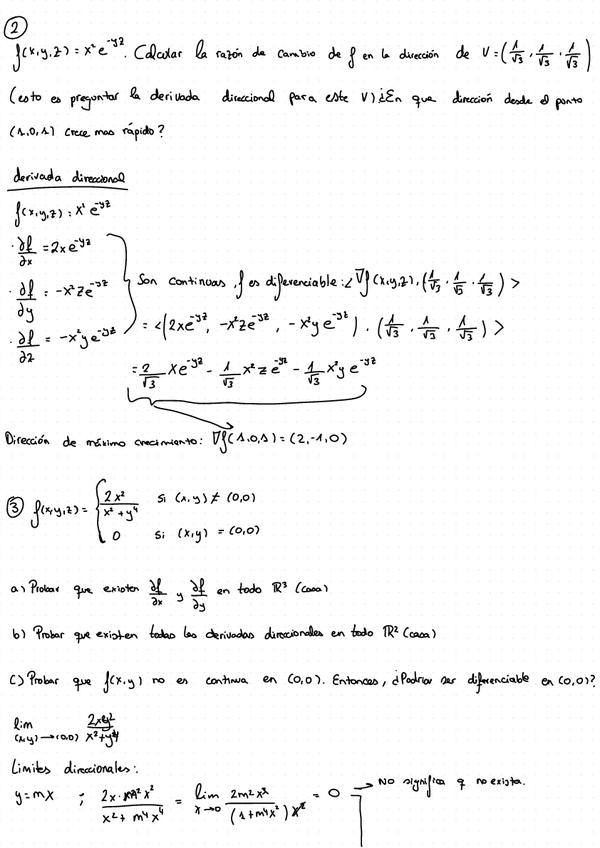 ②
f(x,y,z) = x² e^{-yz}. Calcular la razón de cambio de f en la dirección de V = (1/√3, 1/√3, 1/√3)
(esto es preguntar la derivada direccional para este V) ¿En que dirección desde el punto
(1,0,1) crece mas rápido?
derivada direccional
f(x,y,z) = x² e^{-yz}
· ∂f/∂x = 2x e^{-yz}
· ∂f/∂y = -x² z e^{-yz}
· ∂f/∂z = -x² y e^{-yz}
Son continuas, f es diferenciable: < ∇f(x,y,z), (1/√3, 1/√3, 1/√3) >
= < (2x e^{-yz}, -x² z e^{-yz}, -x² y e^{-yz}) · (1/√3, 1/√3, 1/√3) >
= 2/√3 x e^{-yz} - 1/√3 x² z e^{-yz} - 1/√3 x² y e^{-yz}
Dirección de máximo crecimiento: ∇f(1,0,1) = (2,-1,0)
③ f(x,y,z) = { 2x²/(x² + y⁴) si (x,y) ≠ (0,0)
0 si (x,y) = (0,0)
a) Probar que existen ∂f/∂x y ∂f/∂y en todo ℝ³ (casa)
b) Probar que existen todas las derivadas direccionales en todo ℝ² (casa)
c) Probar que f(x,y) no es continua en (0,0). Entonces, ¿Podría ser diferenciable en (0,0)?
lim (x,y)→(0,0) 2xy²/(x² + y⁴)
Limites direccionales:
y = mx ; 2x · m² x²/(x² + m⁴ x⁴) = lim x→0 2m² x³/((1 + m⁴x²) x²) = 0 → No significa q no exista.